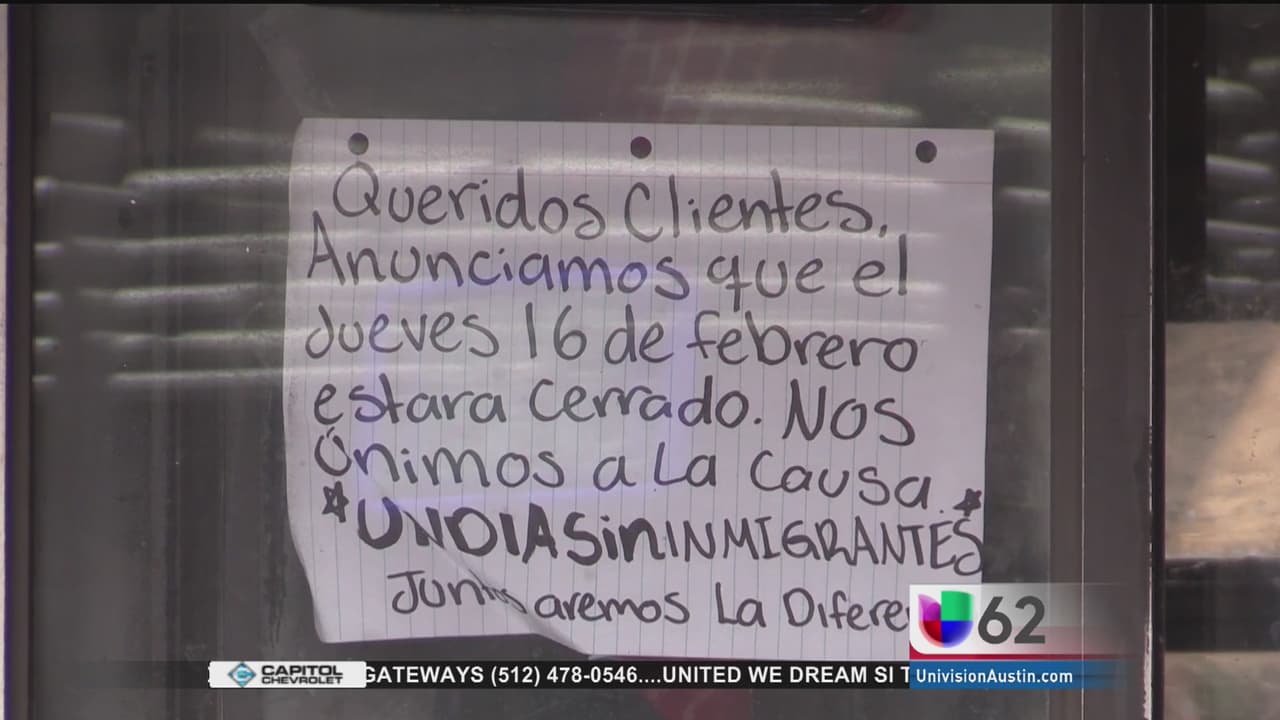 Queridos Clientes,
Anunciamos que el
Jueves 16 de febrero
estara cerrado. Nos
Unimos a La Causa.
*UN DIA Sin INMIGRANTES*
Juntos aremos La Difere
62
CAPITOL
CHEVROLET
GATEWAYS (512) 478-0546....UNITED WE DREAM SI T
UnivisionAustin.com